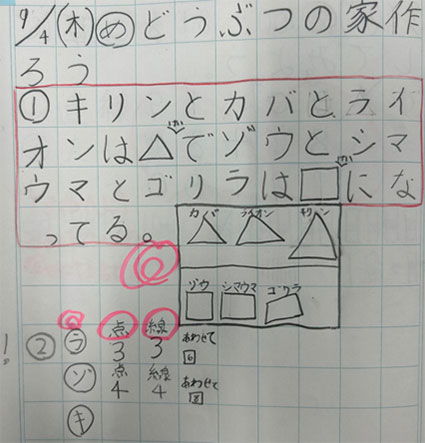 9/4(木)めどうぶつの家作
ろう
①キリンとカバとライ
オンは△でゾウとシマ
ウマとゴリラは□にな
ってる。
カバ ライオン キリン
ゾウ シマウマ ゴリラ
点 線
② ラ 3 3 あわせて 6
点 線
ゾ 4 4 あわせて 8
キ